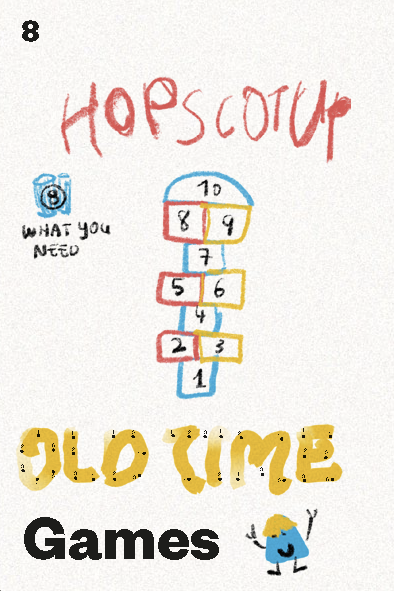 8
HOPSCOTUP
8
WHAT YOU
NEED
10
8 9
7
5 6
4
2 3
1
OLD TIME
Games